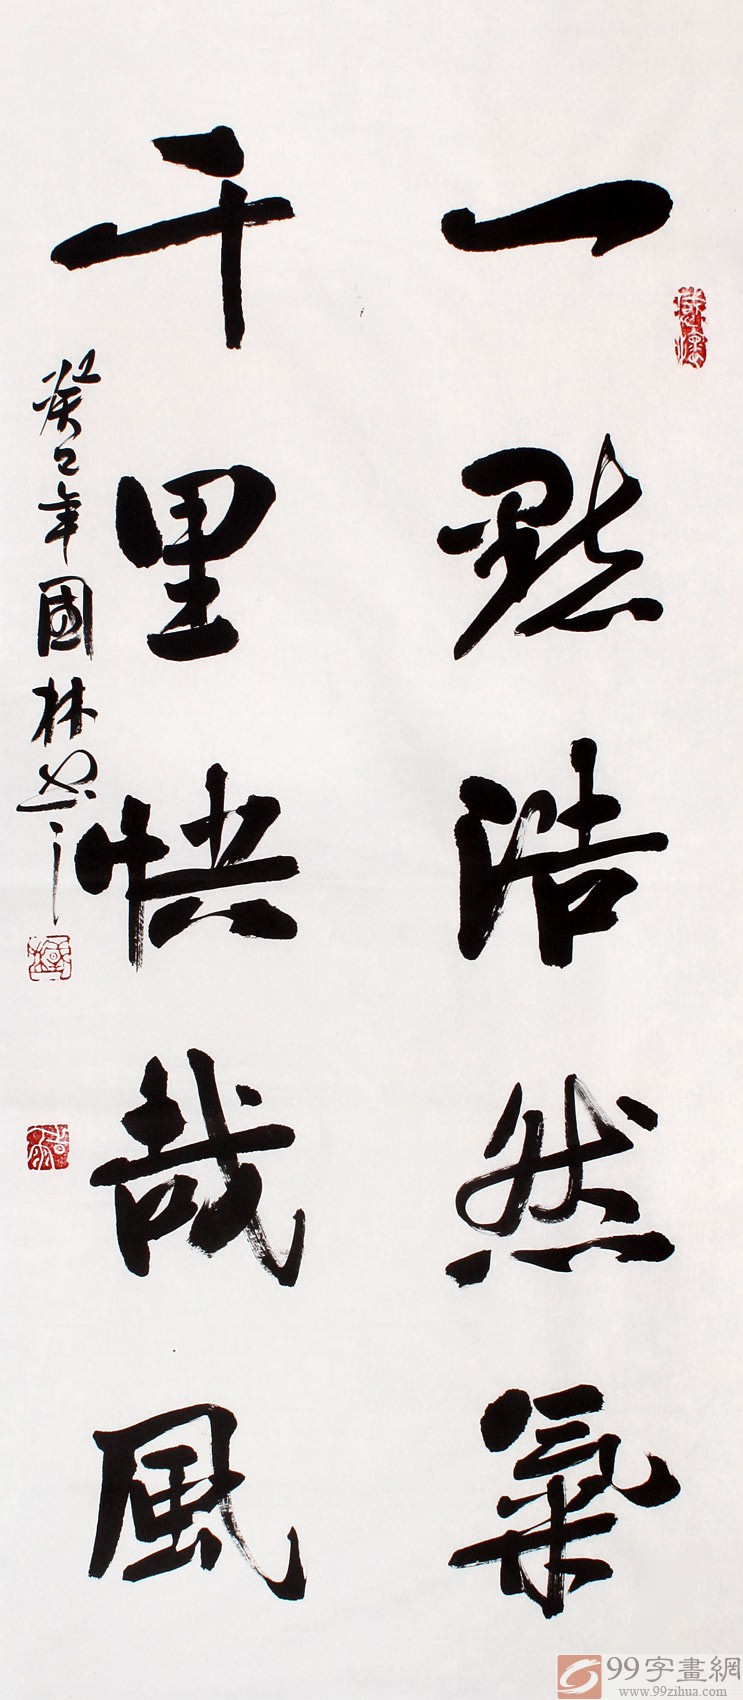 一點浩然氣
千里快哉風
癸巳年國林書
99字畫網
www.99zihua.com